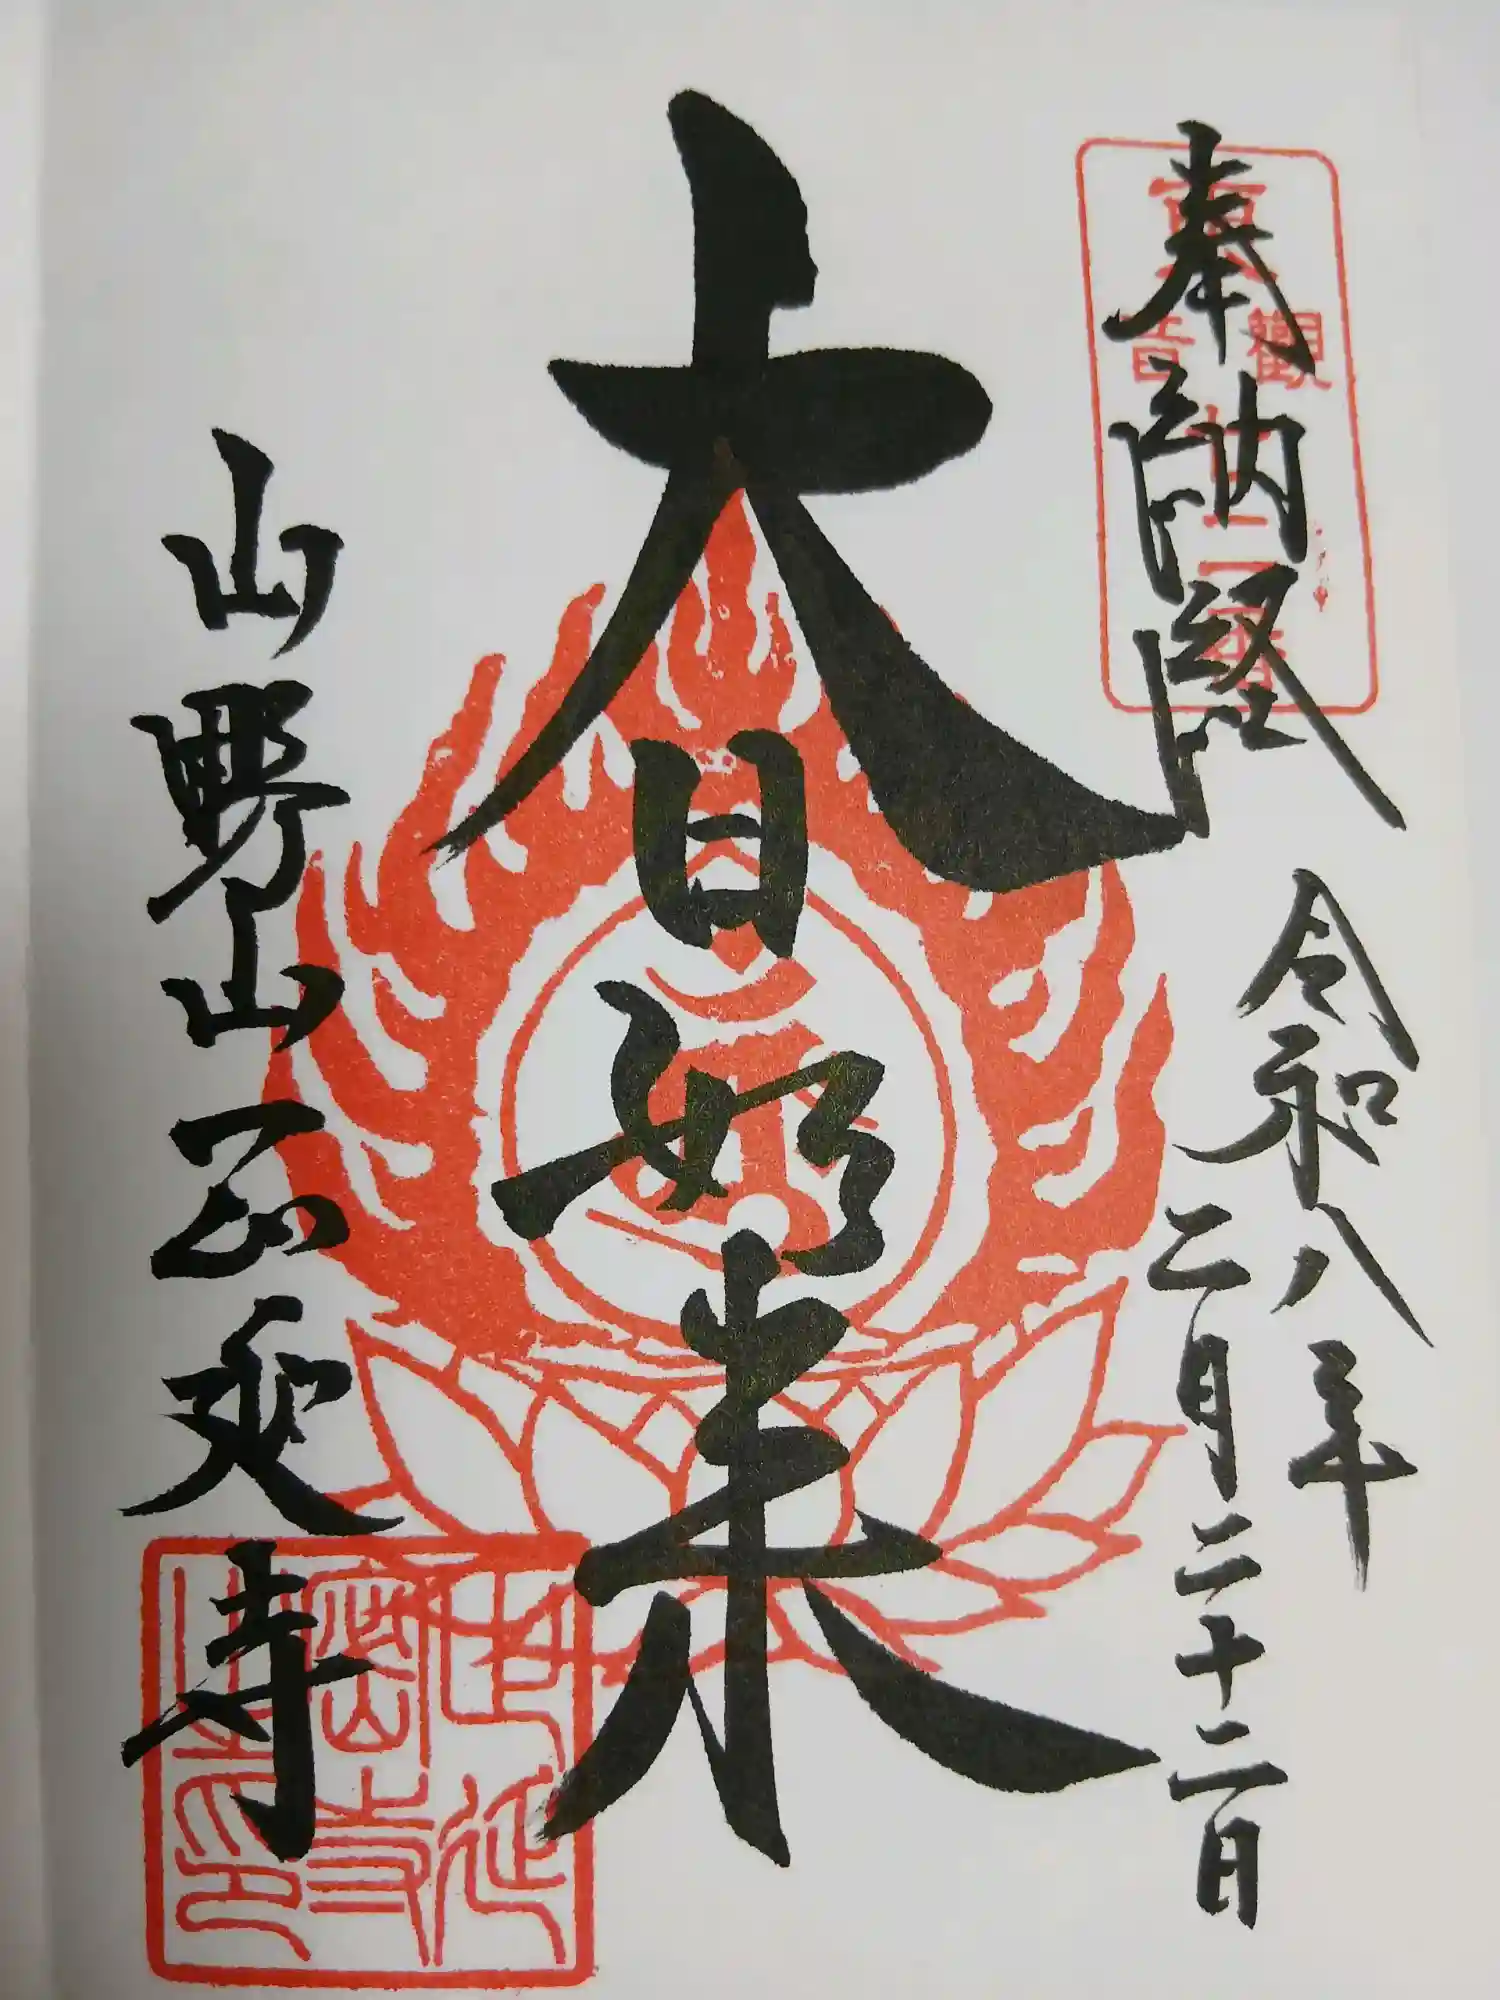 奉納経
觀音
令和八年
二月二十二日
大日如来
山野山
延寺